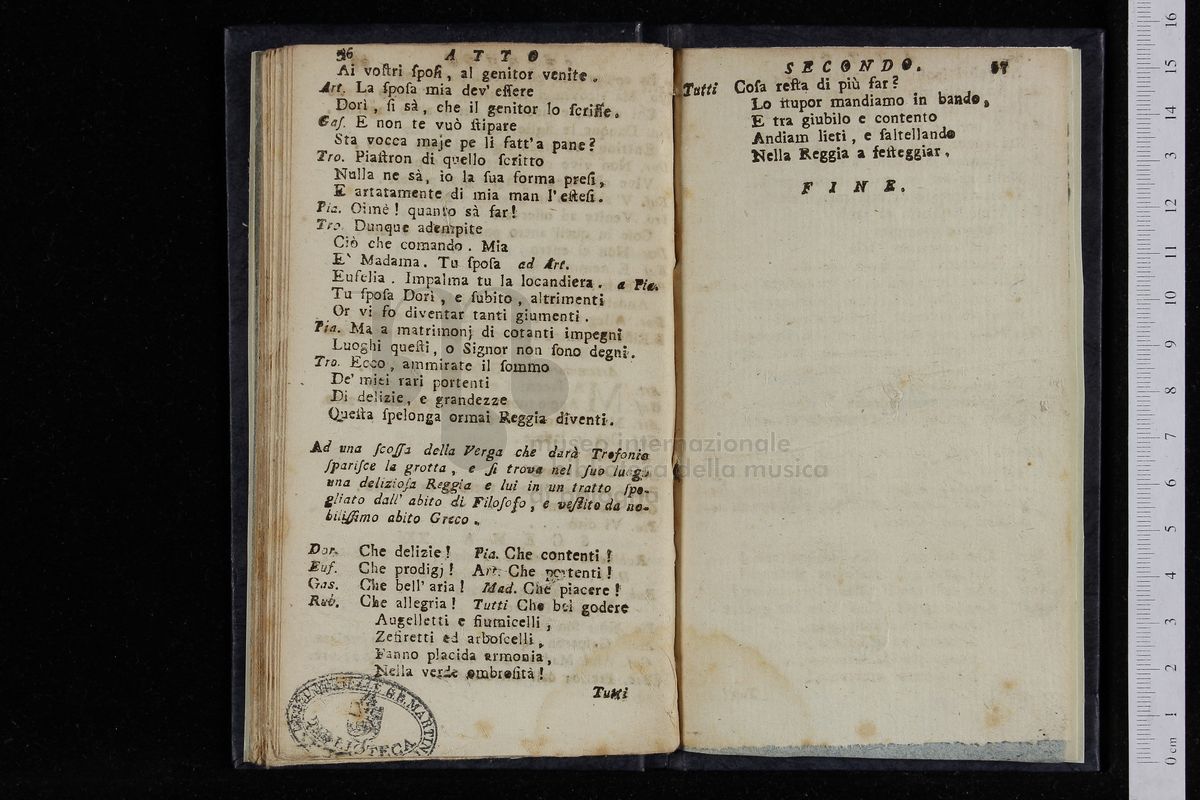 56 ATTO
Ai voſtri ſpoſi, al genitor venite.
Art. La ſpoſa mia dev' eſſere
Dori, ſi sà, che il genitor lo ſcriſſe.
Gaſ. E non te vuò ſtipare
Sta vocca maje pe li fatt'a pane?
Tro. Piaſtron di quello ſcritto
Nulla ne sà, io la ſua forma preſi,
E artatamente di mia man l'eſteſi.
Pia. Oimè! quanto sà far!
Tro. Dunque adempite
Ciò che comando. Mia
E` Madama. Tu ſpoſa ad Art.
Eufelia. Impalma tu la locandiera. a Pia.
Tu ſpoſa Dori, e ſubito, altrimenti
Or vi fo diventar tanti giumenti.
Pia. Ma a matrimonj di cotanti impegni
Luoghi queſti, o Signor non ſono degni.
Tro. Ecco, ammirate il ſommo
De' miei rari portenti
Di delizie, e grandezze
Queſta ſpelonga ormai Reggia diventi.
Ad una ſcoſſa della Verga che darà Trofonio
ſpariſce la grotta, e ſi trova nel ſuo luogo
una delizioſa Reggia e lui in un tratto ſpo-
gliato dall' abito di Filoſofo, e veſtito da no-
biliſſimo abito Greco.
Dor. Che delizie! Pia. Che contenti!
Euf. Che prodigj! Art. Che portenti!
Gas. Che bell' aria! Mad. Che piacere!
Rub. Che allegria! Tutti Che bel godere
Augelletti e fiumicelli,
Zefiretti ed arboſcelli,
Fanno placida armonia,
Nella verde ombroſità!
Tutti
BIBLIOTECA
G.B. MARTINI
SECONDO. 57
Tutti Coſa reſta di più far?
Lo ſtupor mandiamo in bando,
E tra giubilo e contento
Andiam lieti, e ſaltellando
Nella Reggia a feſteggiar.
FINE.
museo internazionale
e biblioteca della musica
di bologna
0 cm 1 2 3 4 5 6 7 8 9 10 11 12 13 14 15 16